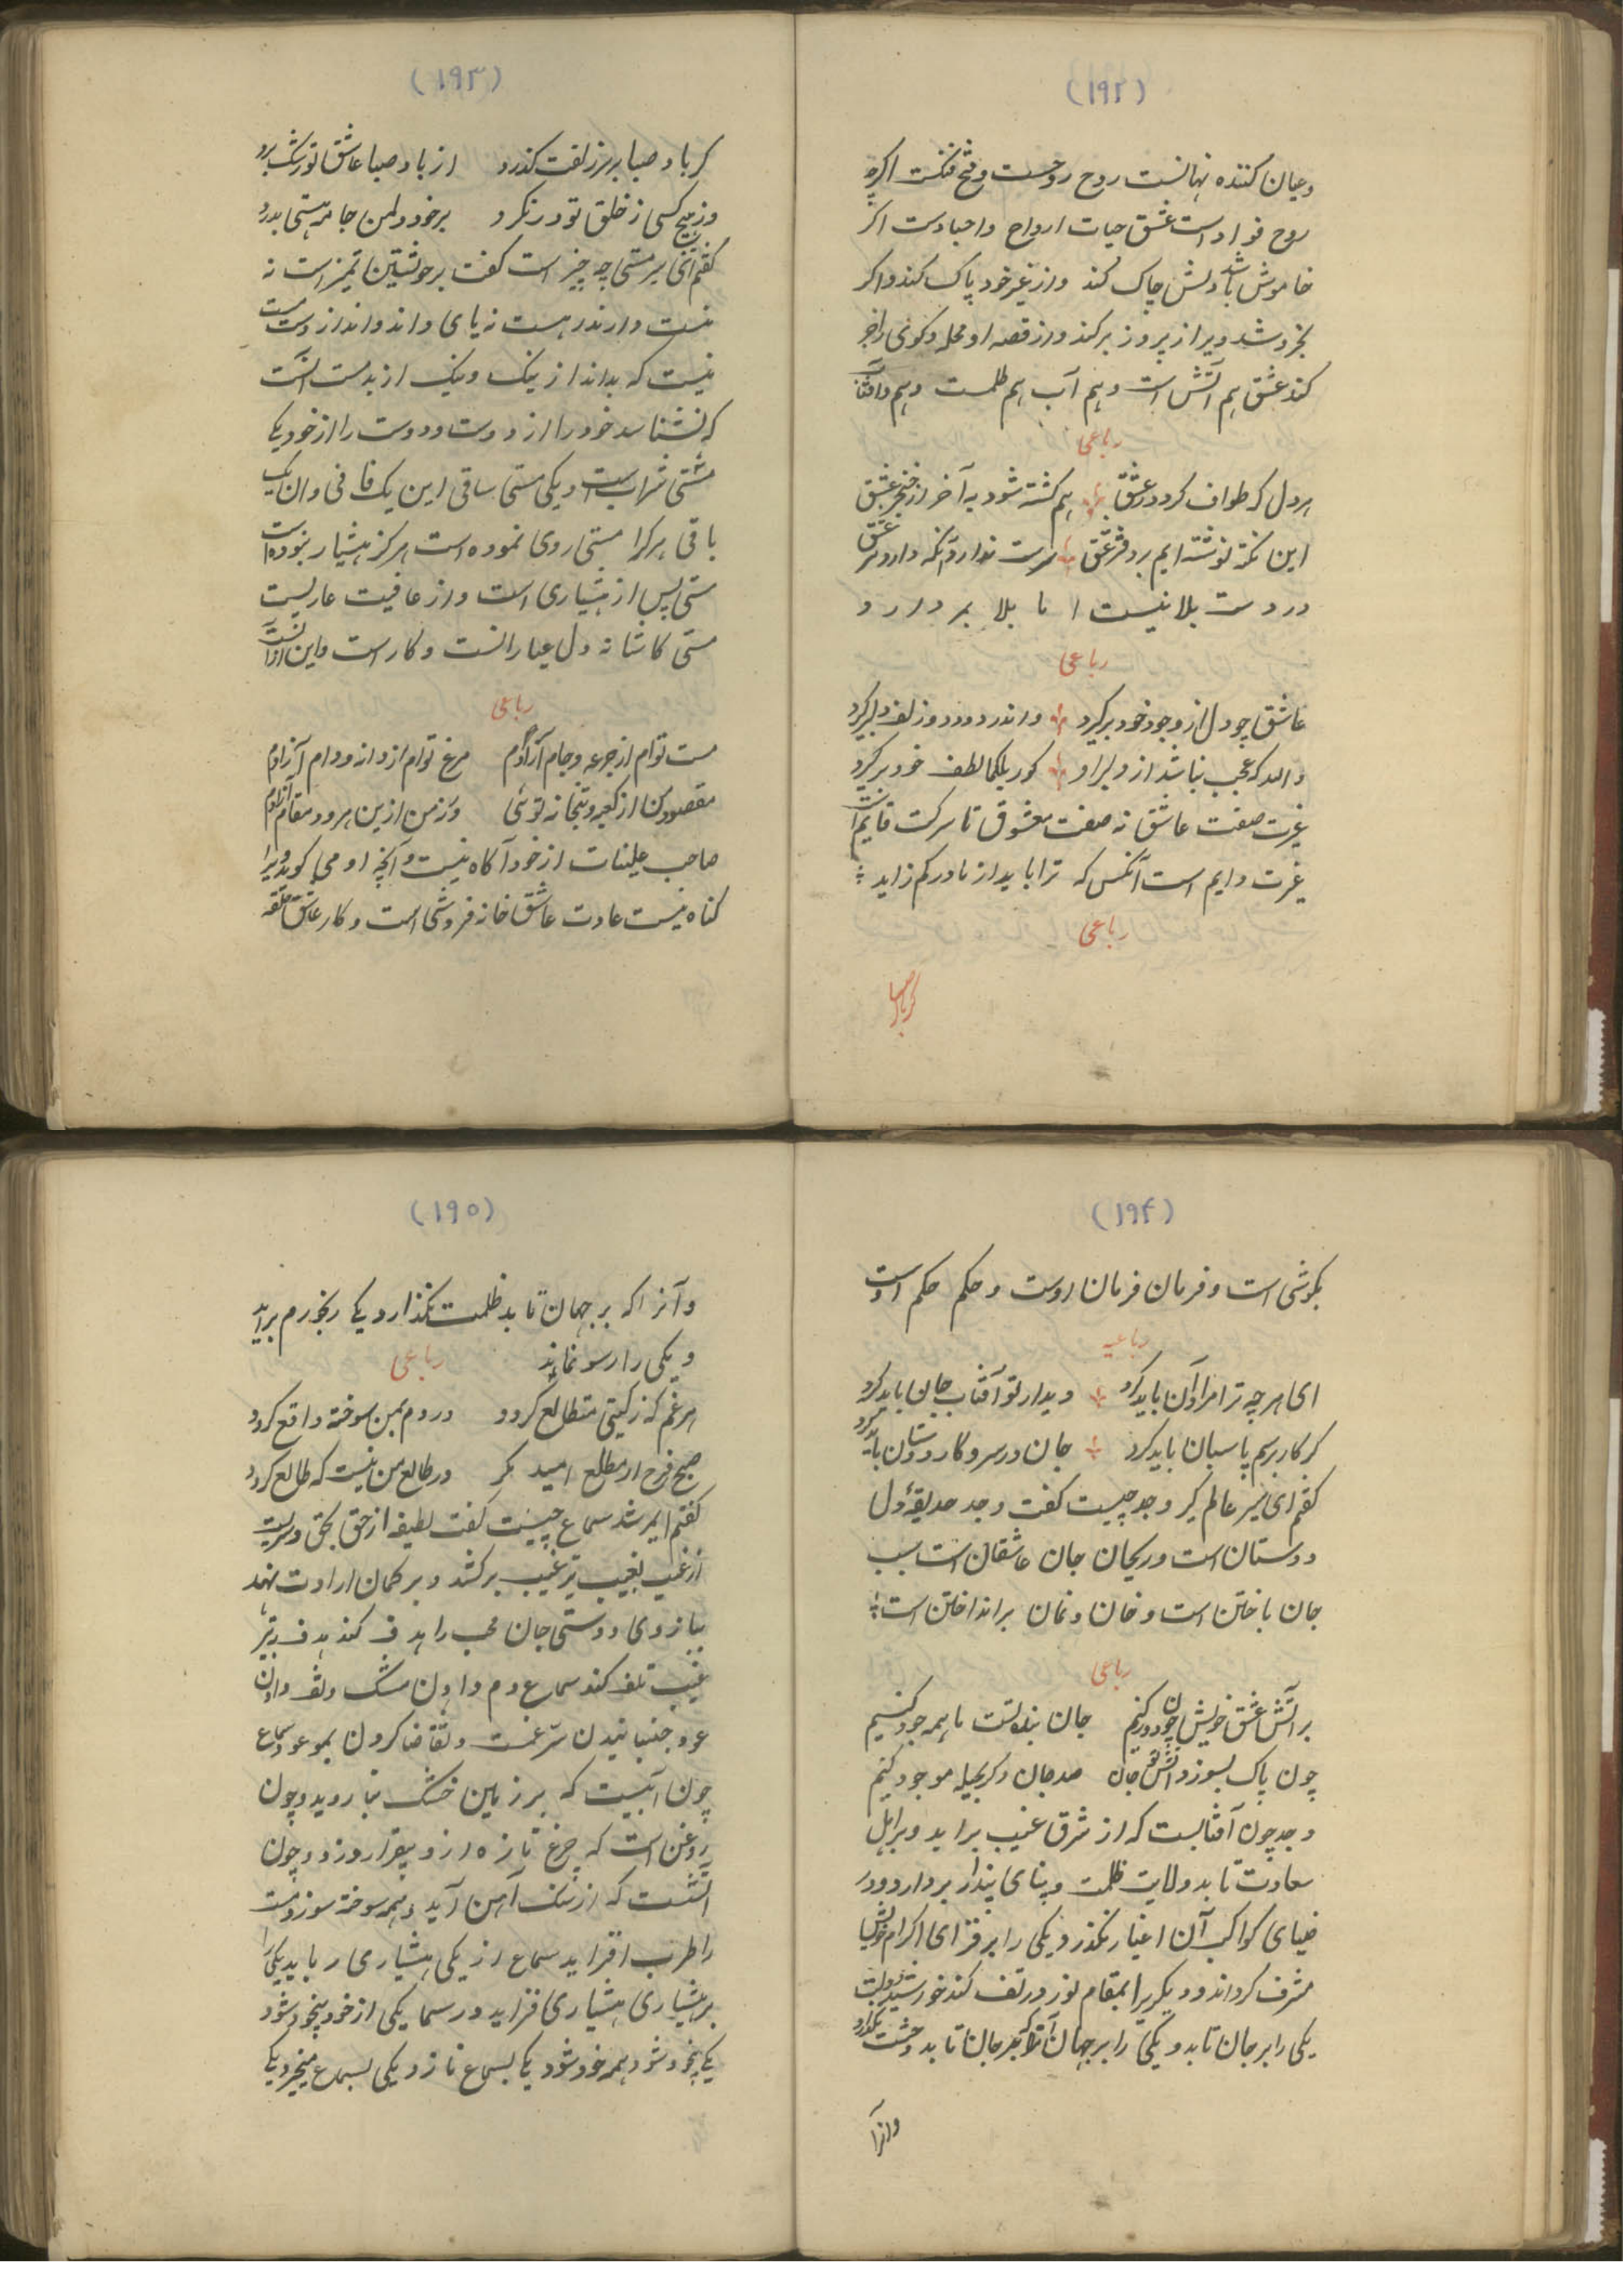 (۱۹۲)
وعیان کننده نهانست روح روحست وفتح فتحست اگرچه
روح فواد است عشق حیات ارواح واجسادست اگر
خاموش باشد دلش چاک کند واز غیر خود پاک کند واگر
بخروشد ویرا از پروز برکند واز قصه او محله وکوئی را خبر
کند عشق هم آتش است وهم آب هم ظلمت وهم آفتاب
رباعی
هر دل که طواف کرد در عشق هم کشته شود به آخر از خنجر عشق
این نکته نوشته ایم بر دفتر عشق سر دوست ندارد آنکه دارد سر عشق
درد دست بلا نیست اما بلا بر دارد
رباعی
عاشق چو دل از وجود خود برگیرد واندر دو زلف دلبر گیرد
والله که عجب نباشد از دلبر او کو را بکمال لطف خود برگیرد
غیرت صفت عاشق نه صفت معشوق تا شرکت قایم است
غیرت دایم است آنکس که ترا باید از مادر کم زاید
رباعی
گر باد صبا
(۱۹۳)
گر باد صبا بر سر زلفت گذرد از باد صبا عاشق تو رشک برد
ور هیچ کسی ز خلق تو در نگرد بر خود دل من جامه هستی بدرد
گفتم ای پیر مستی چه چیز است گفت برخویشتن تمیز است نه
نیست داند نه هست نه پای داند واند از دست مست
نیست که بداند از نیک ونیک از بد مست آنست
که نشناسد خود را از دوست ودوست را از خود یکی
مستی شراب است ویکی مستی ساقی این یک فانی وان یک
باقی هر کرا مستی روی نموده است هرگز هشیار نبوده است
مستی پس از هشیاری است واز عافیت عاریست
مستی کاشانه دل عیارانست وکار است واین از آنست
رباعی
مست توام از جرعه وجام آزادم مرغ توام از دانه ودام آزادم
مقصود من از کعبه وبتخانه توئی ورنه من ازین هر دو مقام آزادم
صاحب غلبات از خود آگاه نیست وآنچه او می گوید ویرا
گناه نیست عادت عاشق خانه فروشی است وکار عاشق حلقه
(۱۹۴)
بگوشی است وفرمان فرمان اوست وحکم حکم اوست
رباعیه
ای هر چه ترا مراد آن باید کرد دیدار تو آفتاب جان باید کرد
گر کار برسم پاسبان باید کرد جان در سر وکار دوستان باید کرد
گفتم ای پیر عالم گیر وجد چیست گفت وجد حدیقهٔ دل
دوستان است وریحان جان عاشقان است سبب
جان باختن است وخان ومان برانداختن است
رباعی
بر آتش عشق خویش چون دود کنیم جان بنده تست ما همه جود کنیم
چون پاک بسوزد آتش عشق جان صد جان دگر بحیله موجود کنیم
وجد چون آفتابست که از شرق غیب براید وبر اهل
سعادت تابد ولایت ظلمت وبنای پندار بردارد ودر
ضیای کواکب آن اغیار نگذرد یکی را بر فزای اکرام خویش
مشرف گرداند ودیگری را بمقام نور در تلف کند خورشید دولت
یکی را بر جان تابد ویکی را بر جهان آنرا که بر جان تابد وحشت نگذارد
وانرا
(۱۹۵)
وآنرا که بر جهان تابد ظلمت نگذارد یکی رنجور هم براید
ویکی را رسو نماید
رباعی
هر غم که ز گیتی متطالع گردد در دم بمن سوخته واقع گردد
صبح فرح از مطلع امید مگر در طالع من نیست که طالع گردد
گفتم ایمرشد سماع چیست گفت لطیفه از حق بحق وسریست
از غیب بغیب تیر غیب برکشد وبر کمان ارادت نهد
ببازوی دوستی جان محب را هدف کند هدف تیر
غیب تلف کند سماع دم دادن مشک وتف دادن
عود جنبانیدن سر غمست وتقاضا کردن بموعود سماع
چون آبیست که بر زمین خشک تبا روید وچون
روغن است که چرغ تازه ازو بیقرار وزد وچون
آتشست که از سنگ آهن آید وهمه سوخته سوزد مست
را طرب افزاید سماع از یکی هشیاری رباید یکی را
بر هشیاری هشیاری فزاید در سماع یکی از خود بیخود شود
یکی بیخود شود همه خود شود یکی بسماع نازد یکی بسماع میخیزد یکی